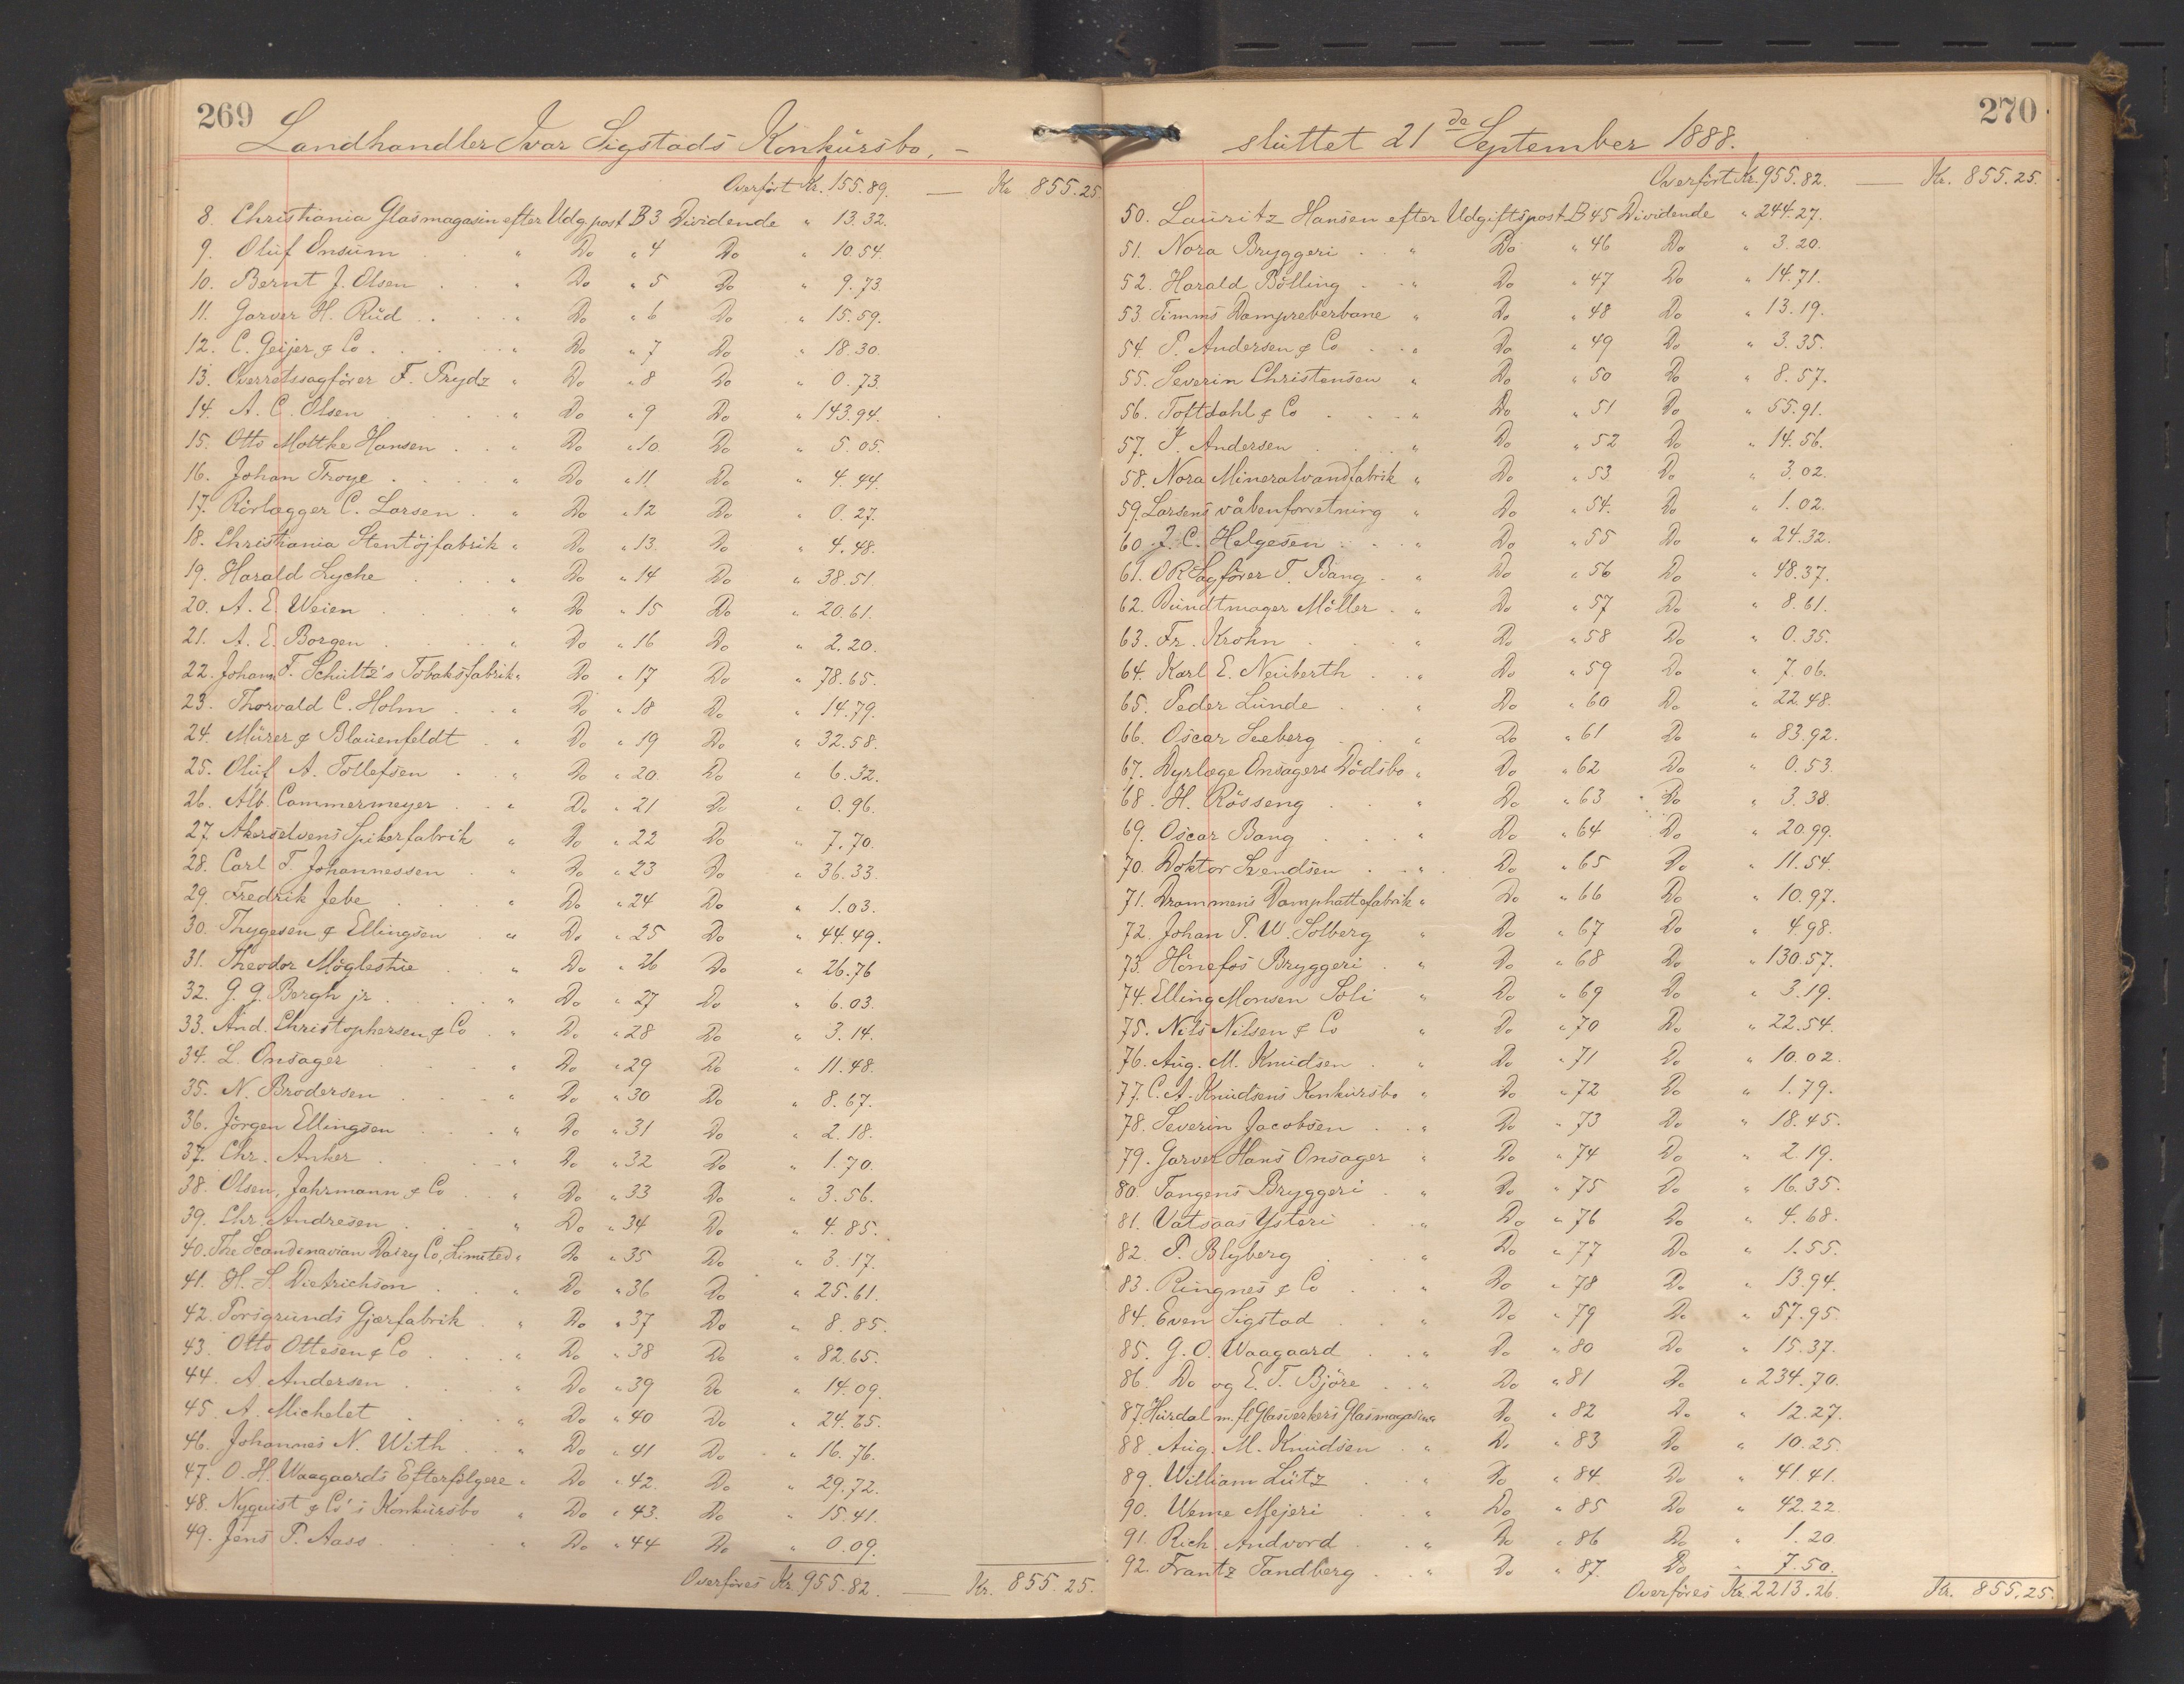 269
Landhandler Ivar Sigstads Konkursbo, -
Overført Kr. 155.89. — Kr. 855.25
8. Christiania Glasmagasin efter Udg.post B 3 Dividende " 13.32.
9. Oluf Onsum . . " Do " 4 Do " 10.54.
10. Bernt J. Olsen . . " Do " 5 Do " 9.73.
11. Garver H. Rud . . " Do " 6 Do " 15.59.
12. C. Geijer & Co . . . " Do " 7 Do " 18.30.
13. Overretssagfører F. Prydz " Do " 8 Do " 0.73.
14. A. C. Olsen . . . " Do " 9 Do " 143.94.
15. Otto Moltke Hansen . . " Do " 10 Do " 5.05.
16. Johan Troye . . . . " Do " 11 Do " 4.44.
17. Rørlægger C. Larsen . " Do " 12 Do " 0.27.
18. Christiania Stentøjfabrik " Do " 13. Do " 4.48.
19. Harald Lyche . . . " Do " 14 Do " 38.51.
20. A. E. Weien . . . . " Do " 15 Do " 20.61.
21. A. E. Borgen . . . . " Do " 16 Do " 2.20.
22. Johan F. Schultz's Tobaksfabrik " Do " 17 Do " 78.65.
23. Thorvald C. Holm . . " Do " 18 Do " 14.79.
24. Mürer & Blauenfeldt . " Do " 19 Do " 32.58.
25. Oluf A. Tollefsen . . " Do " 20. Do " 6.32.
26. Alb. Cammermeyer . . " Do " 21 Do " 0.96.
27. Akerselvens Spikerfabrik " Do " 22 Do " 7.70.
28. Carl F. Johannessen . " Do " 23 Do " 36.33.
29. Fredrik Jebe . . . " Do " 24 Do " 1.03.
30. Thygesen & Ellingsen . " Do " 25 Do " 44.49.
31. Theodor Møglestue . " Do " 26 Do " 26.76
32. G. G. Bergh jr . . . . " Do " 27 Do " 6.03.
33. And. Christophersen & Co . " Do " 28 Do " 3.14.
34. L. Onsager . . . . " Do " 29 Do " 11.48.
35. N. Brodersen . . . " Do " 30 Do " 8.67.
36. Jörgen Ellingsen . . . " Do " 31 Do " 2.18.
37. Chr. Anker . . . . " Do " 32 Do " 1.70.
38. Olsen, Jahrmann & Co . . " Do " 33 Do " 3.56.
39. Chr. Andresen . . . " Do " 34 Do " 4.85.
40. The Scandenavian Dairy Co, Limited " Do " 35 Do " 3.17.
41. H. S. Dietrichson . . " Do " 36 Do " 25.61.
42. Porsgrunds Gjærfabrik . " Do " 37 Do " 8.85.
43. Otto Ottesen & Co . . . " Do " 38 Do " 82.65.
44. A. Andersen . . . " Do " 39 Do " 14.09.
45. A. Michelet . . . . " Do " 40 Do " 24.85.
46. Johannes N. With . . " Do " 41 Do " 16.76.
47. O. H. Waagaards Efterfølgere " Do " 42. Do " 29.72.
48. Nyquist & Co's Konkursbo " Do " 43. Do " 15.41.
49. Jens P. Aass . . . . " Do " 44 Do " 0.09.
Overføres Kr. 955.82. — Kr. 855.25.
270
sluttet 21de September 1888.
Overført Kr. 955.82. — Kr. 855.25.
50. Lauritz Hansen efter Udgiftspost B 45 Dividende " 244.27.
51. Nora Bryggeri . . " Do " 46 Do " 3.20.
52. Harald Bølling . . " Do " 47 Do " 14.71.
53. Timms Dampreberbane " Do " 48 Do " 13.19.
54. P. Andersen & Co . . " Do " 49 Do " 3.35.
55. Severin Christensen " Do " 50 Do " 8.57.
56. Toftdahl & Co . . . " Do " 51 Do " 55.91.
57. J. Andersen . . . " Do " 52 Do " 14.56.
58. Nora Mineralvandfabrik " Do " 53 Do " 3.02.
59. Larsens våbenforretning " Do " 54. Do " 1.02.
60. J. C. Helgesen . . . " Do " 55 Do " 24.32.
61. ORSagfører T. Bang . " Do " 56 Do " 48.37.
62. Bundtmager Møller . " Do " 57 Do " 8.61.
63. Fr. Krohn . . . " Do " 58 Do " 0.35.
64. Karl E. Neuberth . . " Do " 59 Do " 7.06.
65. Peder Lunde . . . " Do " 60 Do " 22.48.
66. Oscar Seeberg . . . " Do " 61 Do " 83.92.
67. Dyrlæge Onsagers Dødsbo " Do " 62 Do " 0.53.
68. H. Røsseng . . . " Do " 63 Do " 3.38.
69. Oscar Bang . . . " Do " 64 Do " 20.99.
70. Doktor Svendsen . . " Do " 65 Do " 11.54.
71. Drammens Damphattefabrik " Do " 66 Do " 10.97.
72. Johan P. W. Solberg " Do " 67 Do " 4.98.
73. Hönefos Bryggeri . " Do " 68 Do " 130.57.
74. Elling Monsen Soli " Do " 69 Do " 3.19.
75. Nils Nilsen & Co " Do " 70 Do " 22.54.
76. Aug. M. Knudsen . " Do " 71 Do " 10.02.
77. C. A. Knudsens Konkursbo " Do " 72 Do " 1.79.
78. Severin Jacobsen . . " Do " 73 Do " 18.45.
79. Garver Hans Onsager " Do " 74 Do " 2.19.
80. Tangens Bryggeri . " Do " 75 Do " 16.35.
81. Vatsaas Ysteri . . " Do " 76 Do " 4.68.
82. P. Blyberg . . . " Do " 77 Do " 1.55.
83. Ringnes & Co . . " Do " 78 Do " 13.94.
84. Even Sigstad . . " Do " 79 Do " 57.95.
85. G. O. Waagaard . . " Do " 80 Do " 15.37.
86. Do og E. T. Björe . . " Do " 81 Do " 234.70.
87. Hurdal m.fl Glasverkers Glasmagasin " Do " 82 Do " 12.27.
88. Aug. M. Knudsen . " Do " 83 Do " 10.25.
89. William Lütz . . " Do " 84. Do " 41.41.
90. Weme Mejeri . . " Do " 85 Do " 42.22
91. Rich. Andvord . . " Do " 86 Do " 1.20
92. Frantz Tandberg . . " Do " 87. Do " 7.50.
Overføres Kr. 2213.26. Kr. 855.25.